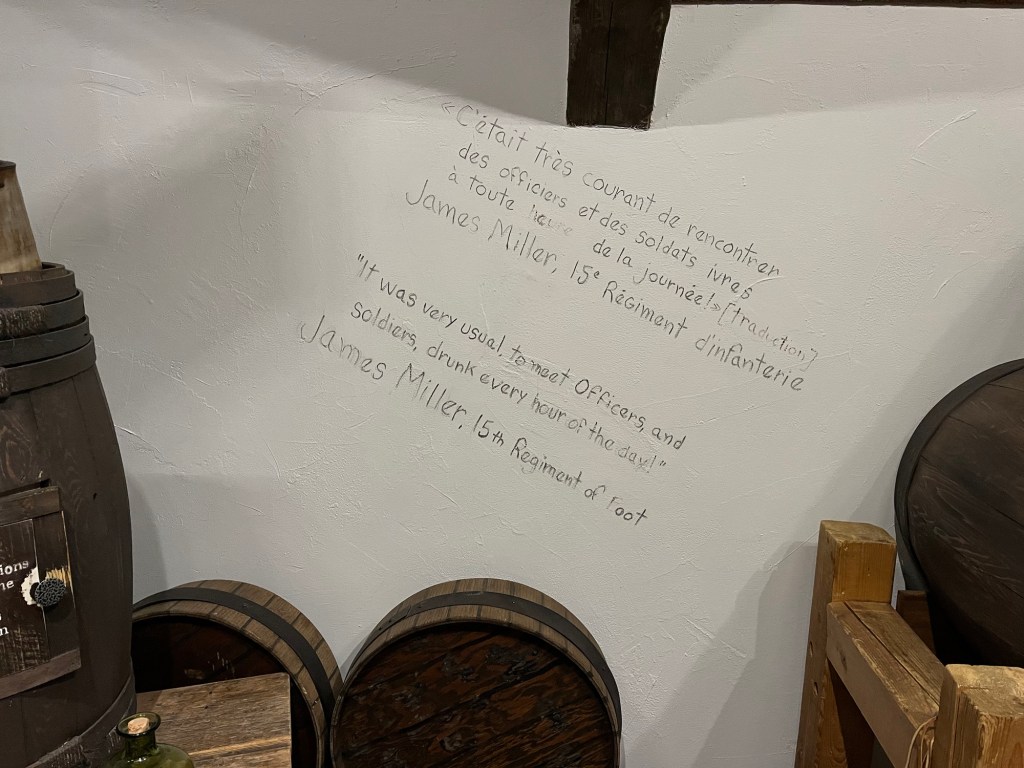 « C'était très courant de rencontrer
des officiers et des soldats ivres
à toute heure de la journée!» [traduction]
James Miller, 15e Régiment d'infanterie
"It was very usual, to meet Officers, and
soldiers, drunk every hour of the day!"
James Miller, 15th Regiment of Foot